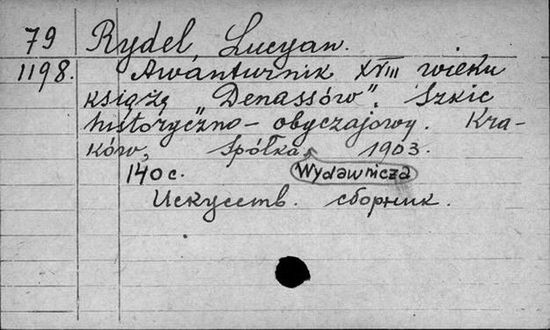 79 Rydel, Lucyan.
1198. Awanturnik XVIII wieku
książę „Denassów”. Szkic
historyczno-obyczajowy. Kra-
ków, Spółka 1903.
140 с. Wydawnicza
Искусств. сборник.